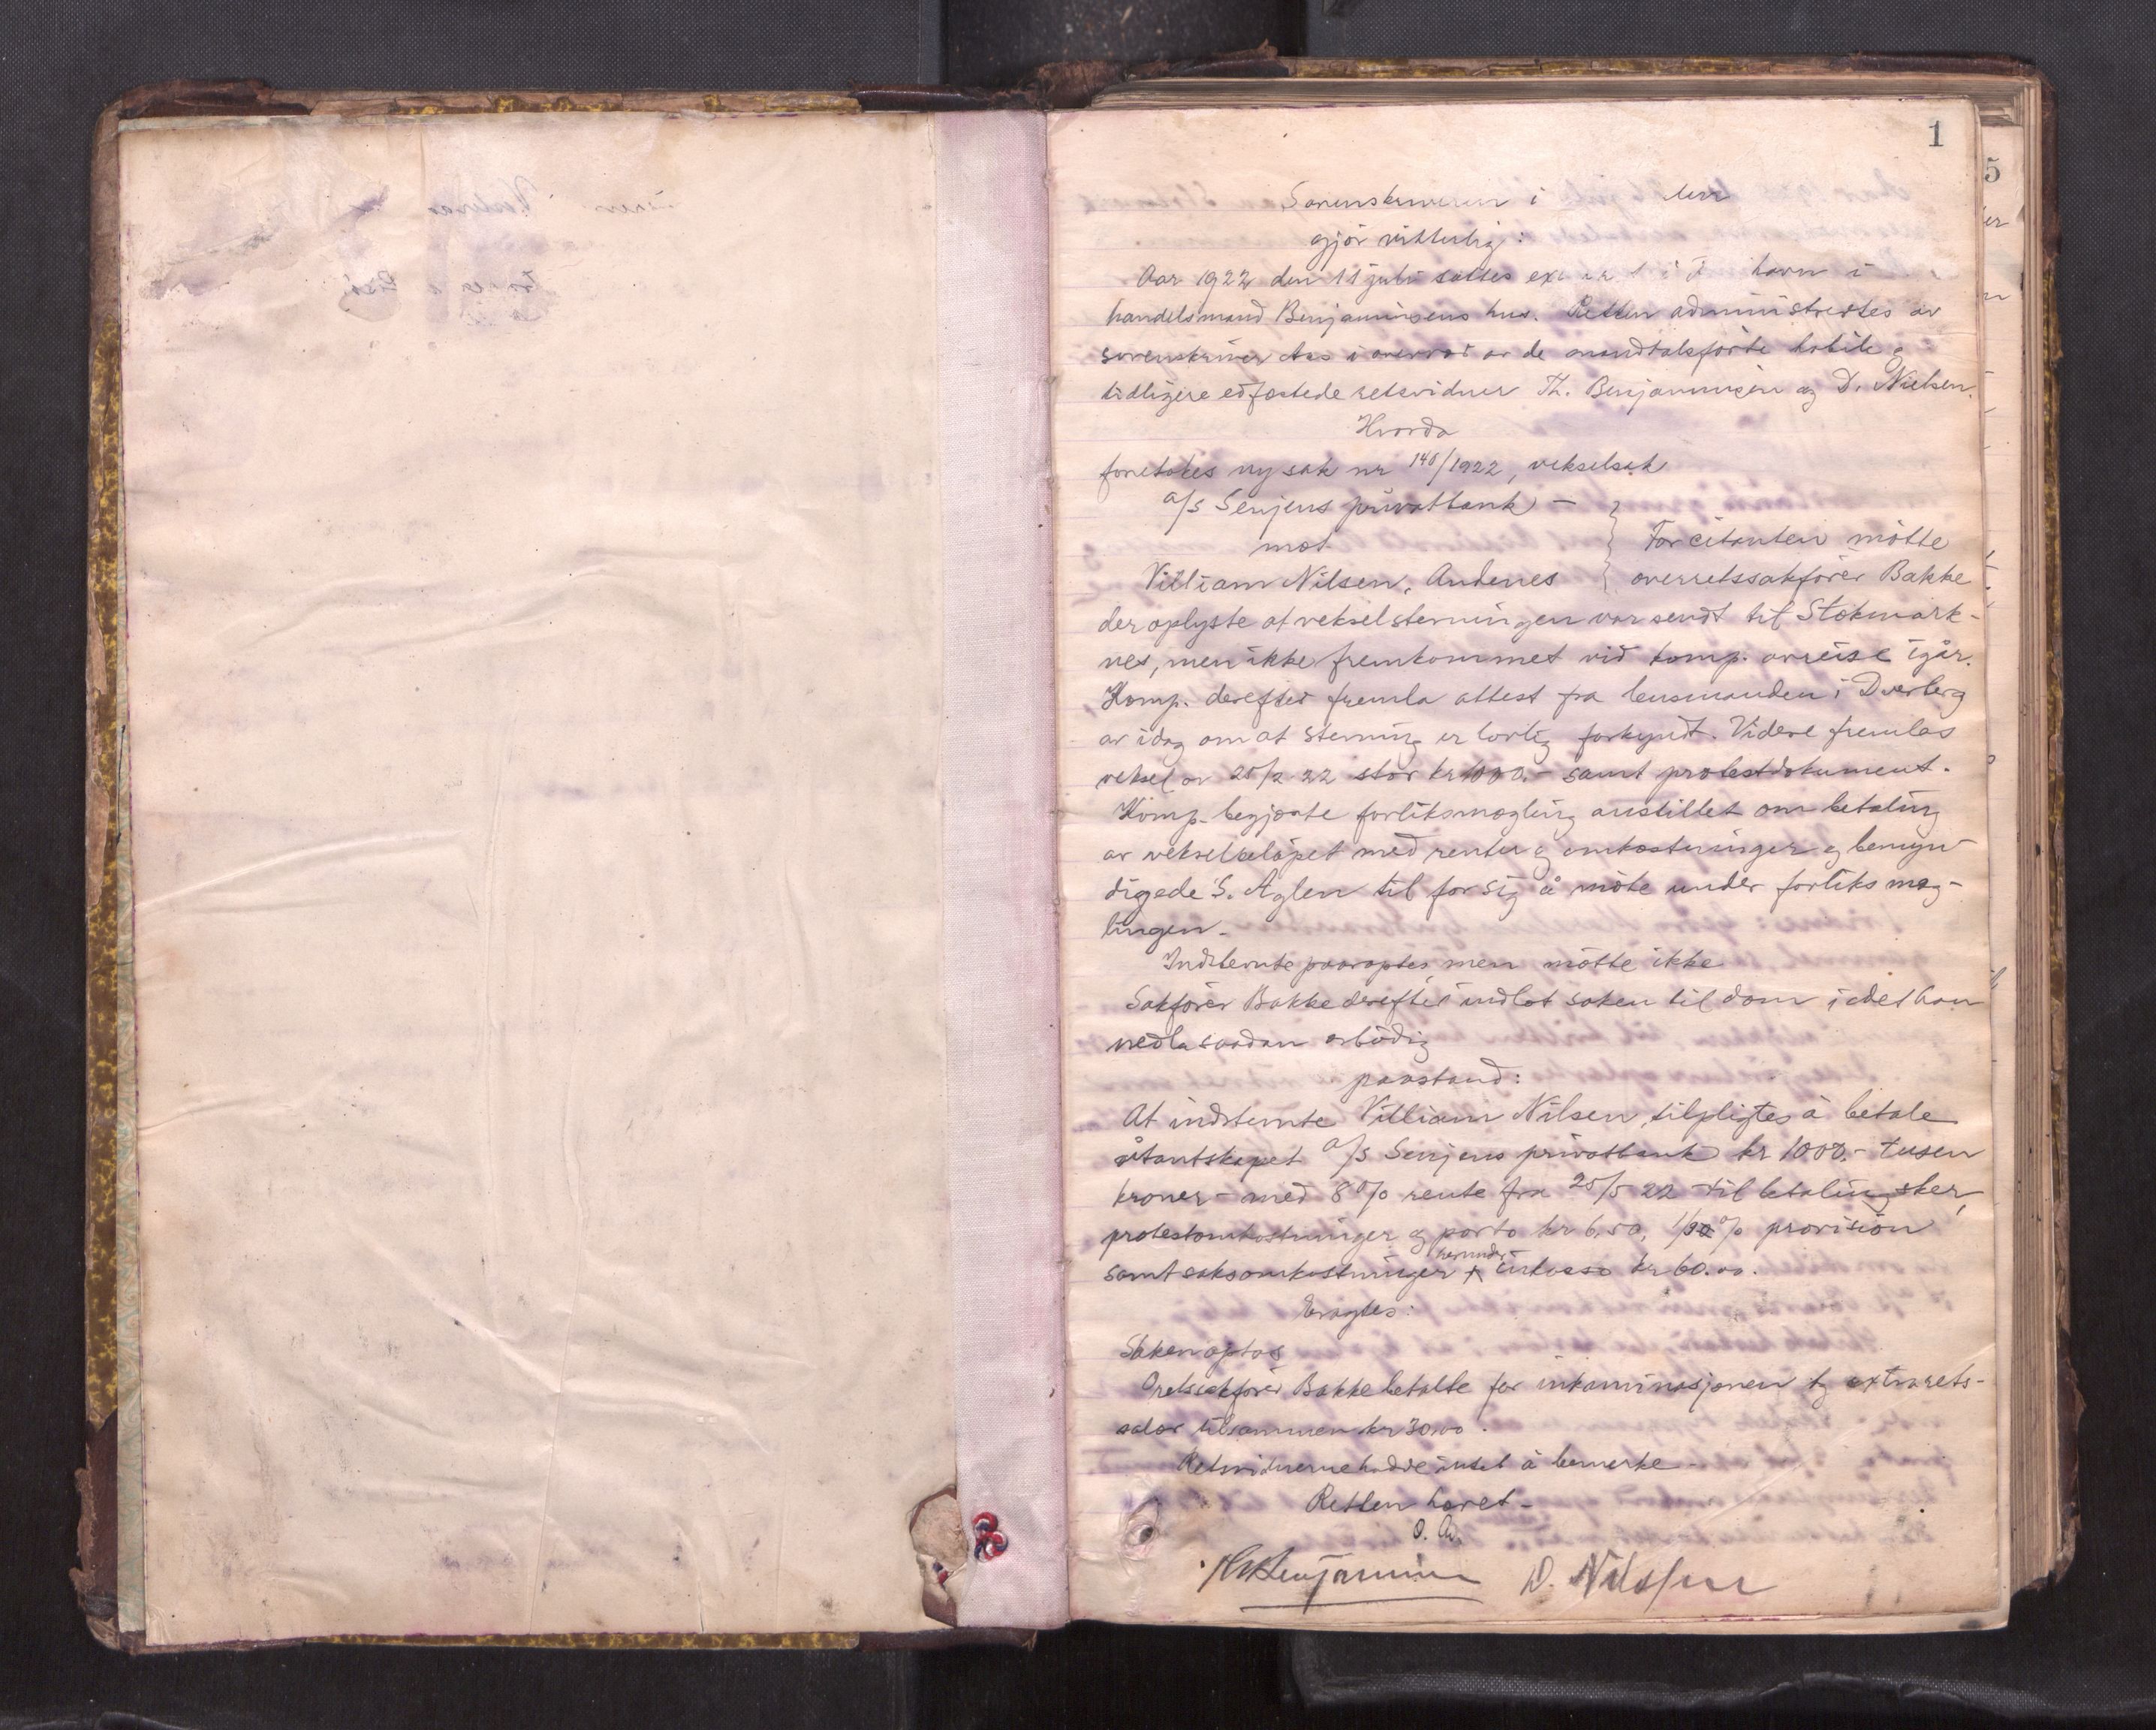 1
5
Sorenskriveren i
gjör vitterlig:
Aar 1922 den 11 juli sattes havn i
handelsmand Benjaminsens hus. Retten administrertes av
sorenskriver Aas i overvær av de mandtalsförte habile
tidligere edfæstede retsvidner Th. Benjaminsen og D. Nielsen.
Hvorda
foretokes ny sak nr 148/1922, vekselsak
a/s Senjens privatbank -
mot
Villiam Nilsen, Andenes
For citanten mötte
overretssakförer Bakke
der oplyste at vekselstevningen var sendt til Stokmark-
nes, men ikke fremkommet vid komp. avreise igår.
Komp. derefter fremla attest fra lensmanden i Dverberg
av idag om at stevning er lovlig forkyndt. Videre fremlas
veksel av 25/2 22 stor kr 1000.- samt protestdokument.
Komp. begjærte forliksmægling anstillet om betaling
av vekselbelöpet med renter og omkostninger og bemyn-
digede S. Aglen til for sig å möte under forliksmæg-
lingen.
Indstevnte paaroptes men mötte ikke
Sakförer Bakke derefter indlot saken til dom idet han
nedla saadan erbödig
paastand:
At indstevnte Villiam Nilsen, tilpligtes å betale
citantskapet a/s Senjens privatbank kr 1000.- tusen
kroner - med 8 % rente fra 25/5 22 til betaling sker,
protestomkostninger og porto kr 6,50, provision
samt saksomkostninger herunder inkasso kr 60.00.
Eragtes:
Saken optas
Oretssakförer Bakke betalte for inkaminasjonen og extrarets-
salær tilsammen kr 30,00.
Retsvidnerne hadde intet å bemerke -
Retten hævet -
O. Aas
Benjaminsen D. Nilssen